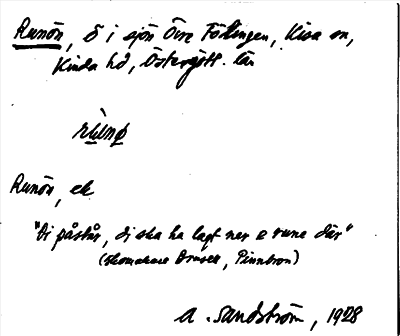 Runön, ö i sjön Övre Föllingen, Kisa sn,
Kinda hd, Östergötl. län
Runön, ek
"Di påstår, di ska ha lagt ner e rune där"
(skomakare Pinntron)
A. Sandström, 1928